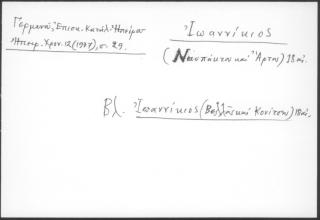 Γερμανοῦ, Ἐπισκ. Κατάλ. Ἠπείρου
Ἠπειρ. Χρον. 12 (1937), σ. 29.
Ἰωαννίκιος
(Ναυπάκτου καὶ Ἄρτης) 18 αἰ.
Βλ. Ἰωαννίκιος (Βελλᾶς καὶ Κονίτσης) 18 αἰ.